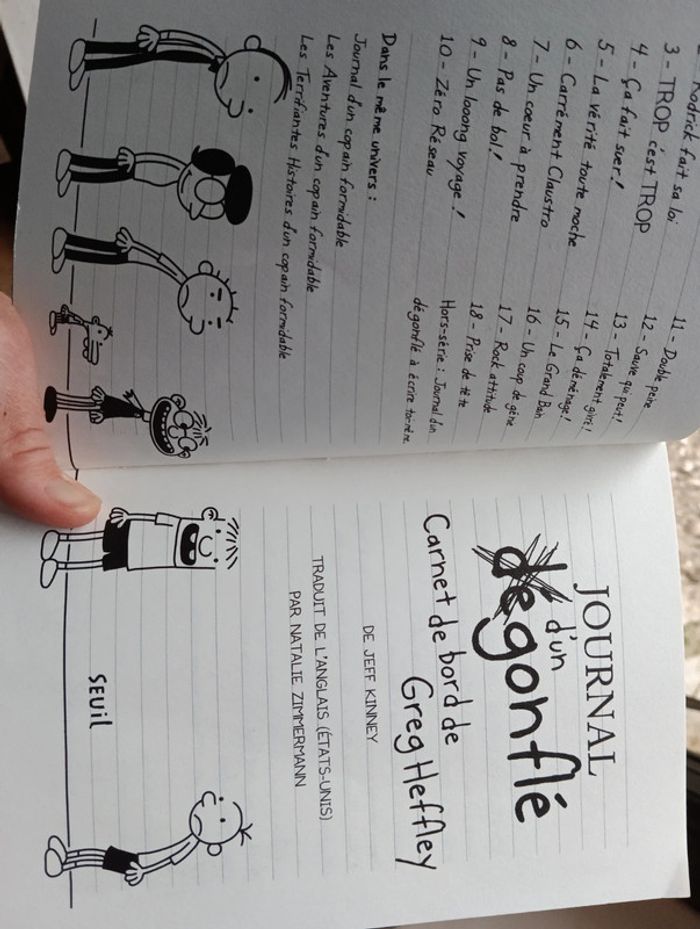 Rodrick fait sa loi
3 - TROP c'est TROP
4 - Ça fait suer!
5 - La vérité toute moche
6 - Carrément Claustro
7 - Un coeur à prendre
8 - Pas de bol!
9 - Un looong voyage!
10 - Zéro Réseau
11 - Double peine
12 - Sauve qui peut!
13 - Totalement givré!
14 - Ça déménage!
15 - Le Grand Bain
16 - Un coup de génie
17 - Rock attitude
18 - Prise de tête
Hors-série: Journal d'un
dégonflé à écrire toi-même
Dans le même univers :
Journal d'un copain formidable
Les Aventures d'un copain formidable
Les Terrifiantes Histoires d'un copain formidable
JOURNAL
d'un
dégonflé
Carnet de bord de
Greg Heffley
DE JEFF KINNEY
TRADUIT DE L'ANGLAIS (ÉTATS-UNIS)
PAR NATALIE ZIMMERMANN
SEUIL